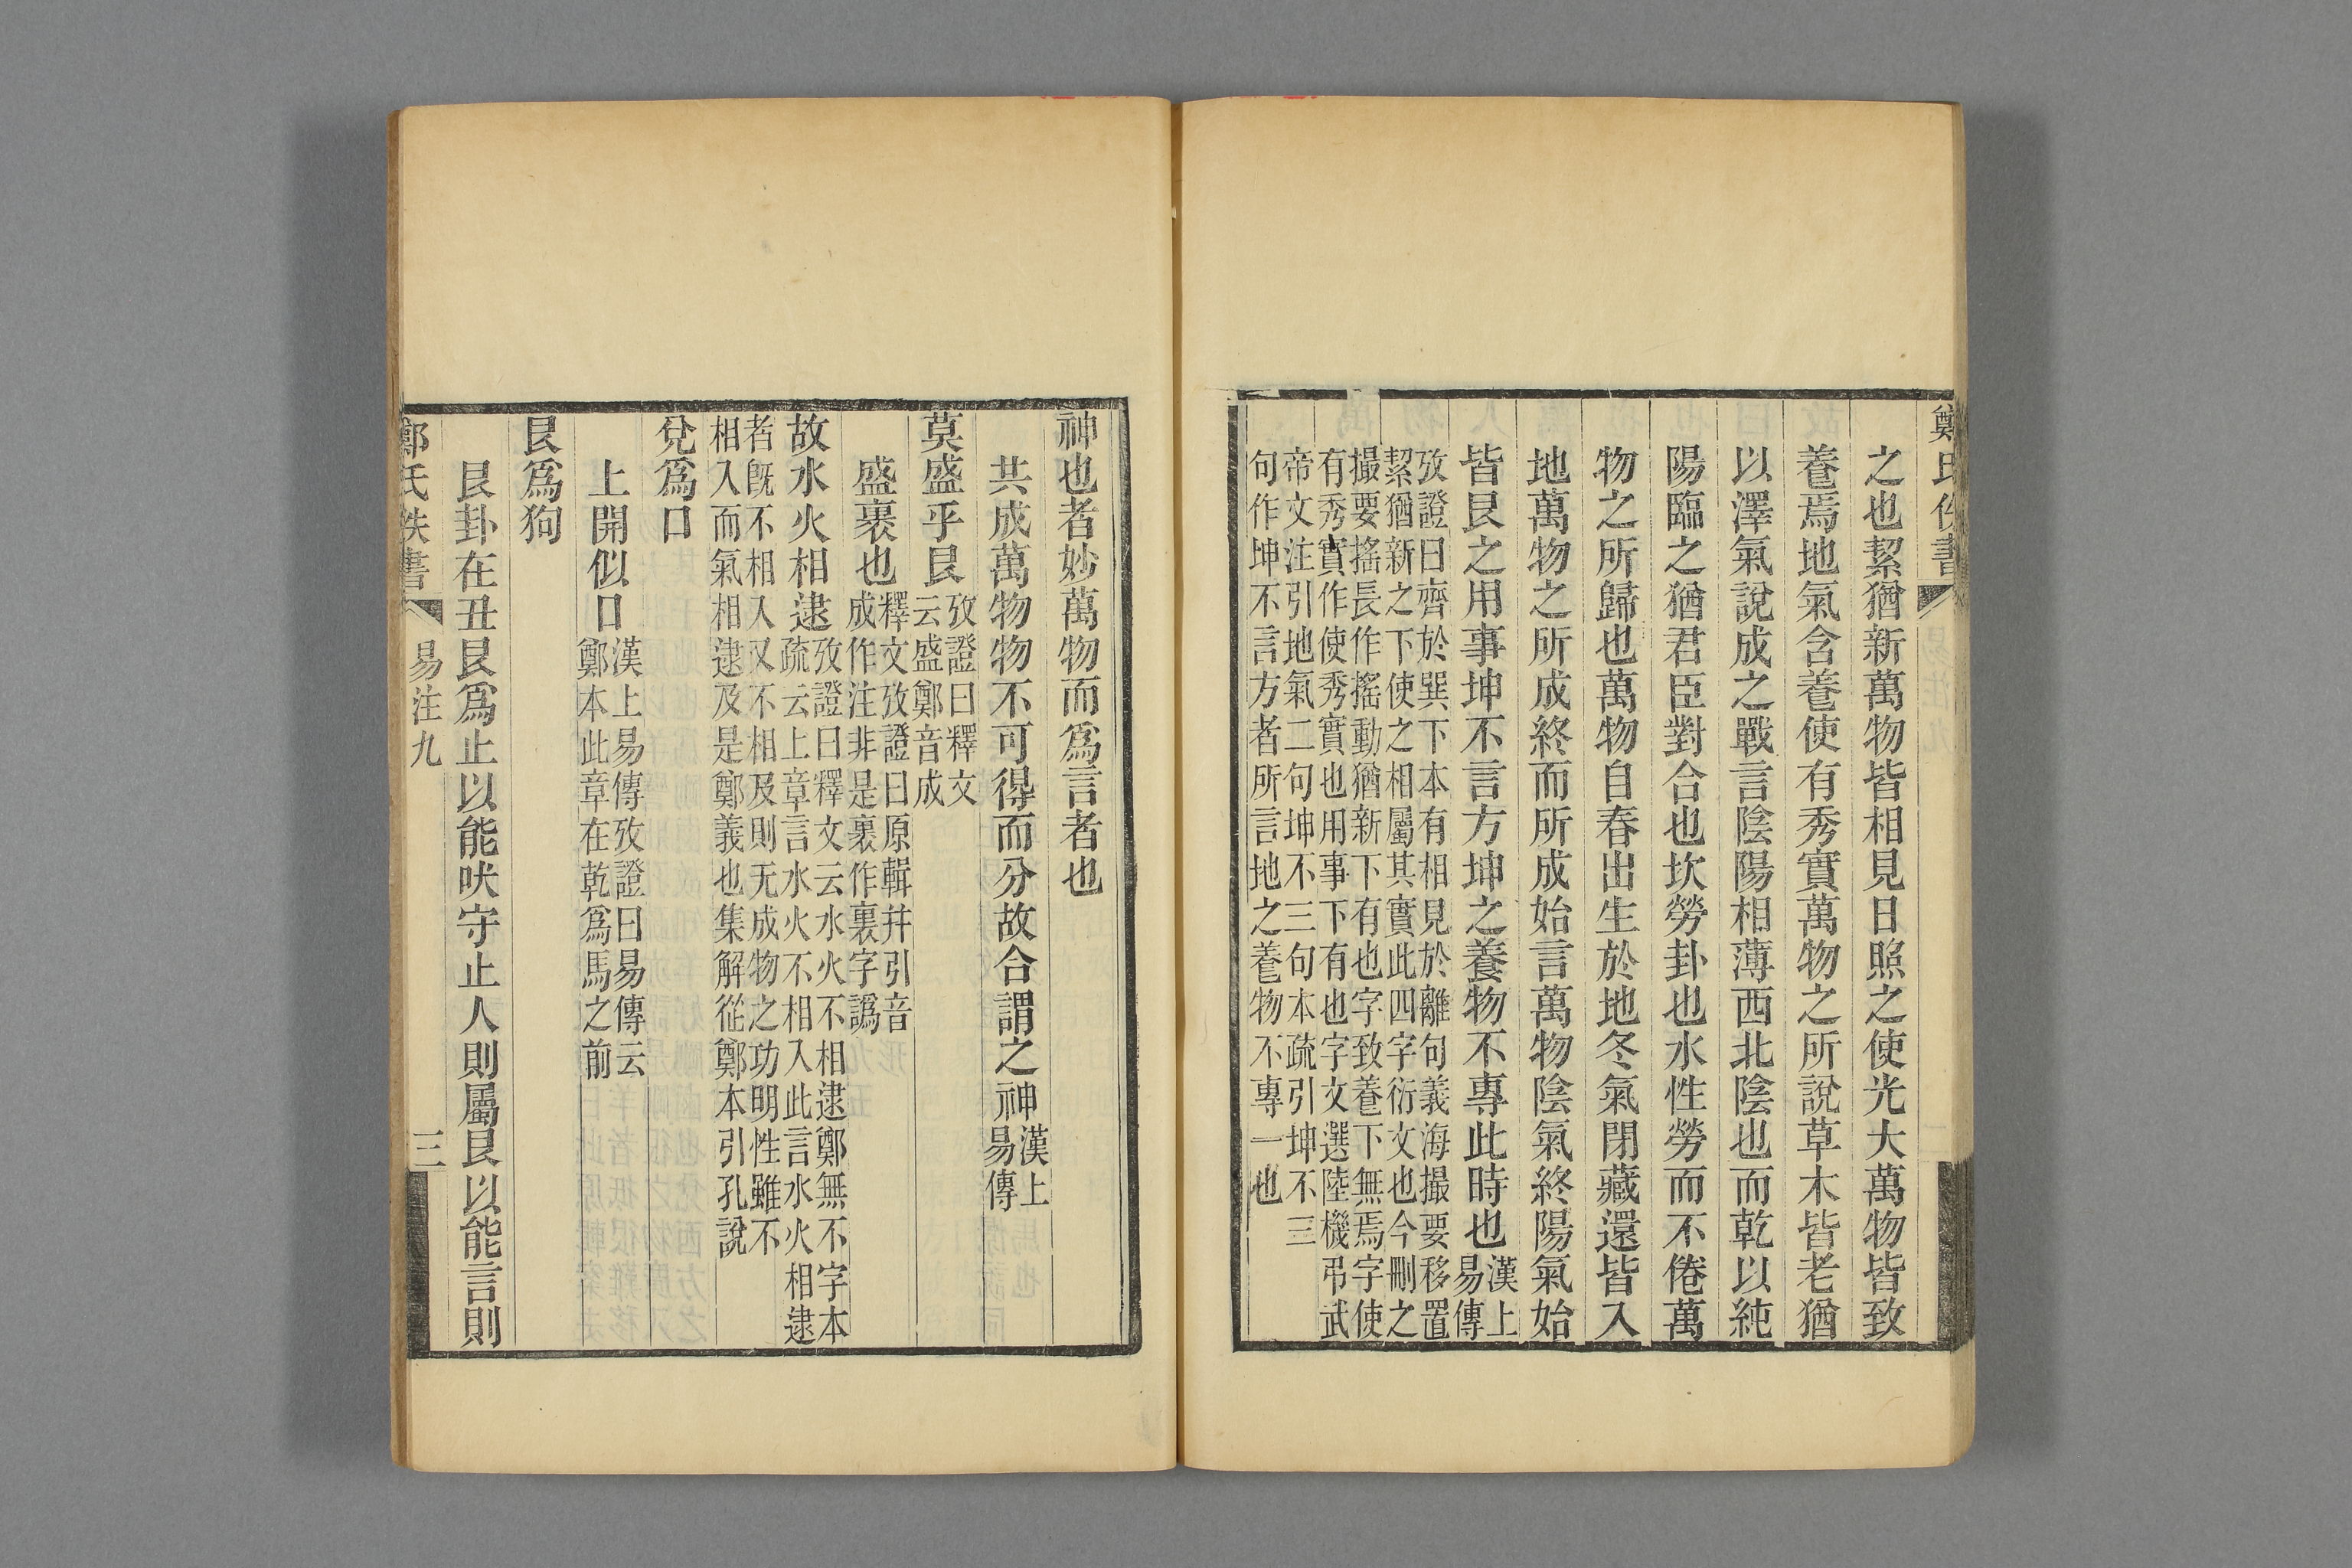 鄭氏佚書
之也絜猶新萬物皆相見日照之使光大萬物皆致
養焉地氣含養使有秀實萬物之所說草木皆老猶
以澤氣說成之戰言陰陽相薄西北陰也而乾以純
陽臨之猶君臣對合也坎勞卦也水性勞而不倦萬
物之所歸也萬物自春出生於地冬氣閉藏還皆入
地萬物之所成終而所成始言萬物陰氣終陽氣始
皆艮之用事坤不言方坤之養物不專此時也漢上
易傳
攷證曰齊於巽下本有相見於離句義海撮要移置
絜猶新之下使之相屬其實此四字衍文也今刪之
撮要搖長作搖動猶新下有也字致養下無焉字使
有秀實作使秀實也用事下有也字文選陸機弔武
帝文注引地氣二句坤不三句本疏引坤不三
句作坤不言方者所言地之養物不專一也
神也者妙萬物而爲言者也
共成萬物物不可得而分故合謂之神漢上
易傳
莫盛乎艮攷證曰釋文
云盛鄭音成
盛裹也釋文攷證曰原輯幷引音
成作注非是裹作裏字譌
故水火相逮攷證曰釋文云水火不相逮鄭無不字本
疏云上章言水火不相入此言水火相逮
者既不相入又不相及則无成物之功明性雖不
相入而氣相逮及是鄭義也集解從鄭本引孔說
兌爲口
上開似口漢上易傳攷證曰易傳云
鄭本此章在乾爲馬之前
艮爲狗
艮卦在丑艮爲止以能吠守止人則屬艮以能言則
鄭氏佚書 易注九 三